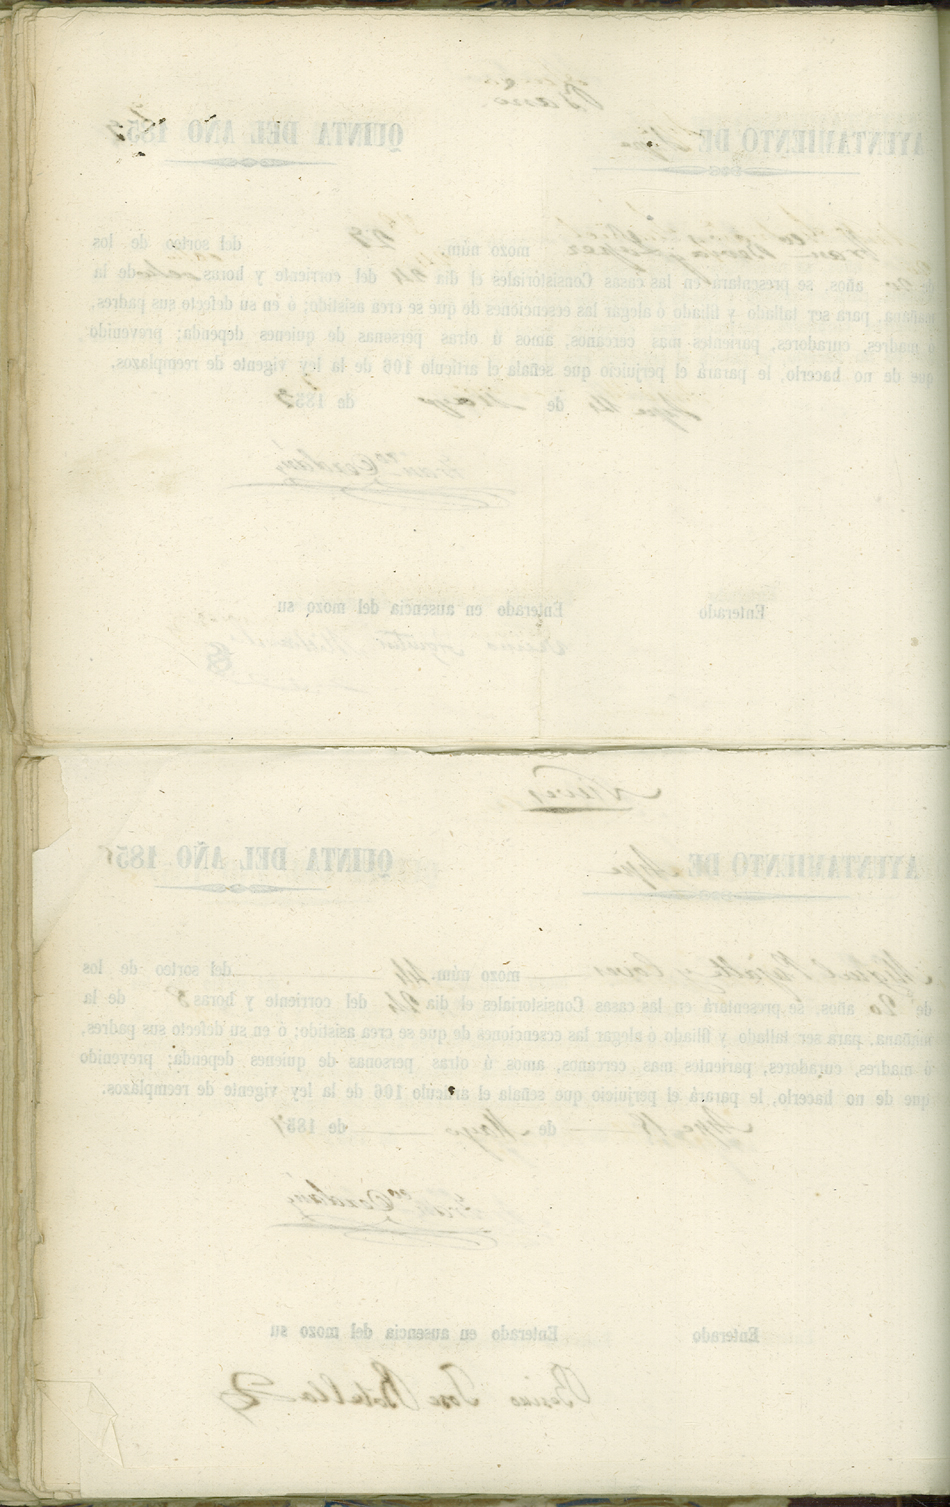 AYUNTAMIENTO DE Aspe QUINTA DEL AÑO 1857
mozo núm. 29 del sorteo de los
de 20 años, se presentará en las casas Consistoriales el dia 24 del corriente y horas de la
mañana, para ser tallado y filiado ó alegar las esenciones de que se crea asistido; ó en su defecto sus padres,
ó madres, curadores, parientes mas cercanos, amos ú otras personas de quienes dependa; prevenido
que de no hacerlo, le parará el perjuicio que señala el artículo 106 de la ley vigente de reemplazos.
Aspe de Mayo de 1857
Enterado Enterado en ausencia del mozo su
Nieves
AYUNTAMIENTO DE Aspe QUINTA DEL AÑO 185
Miguel y mozo núm. 44 del sorteo de los
de 20 años, se presentará en las casas Consistoriales el dia 24 del corriente y horas 8 de la
mañana, para ser tallado y filiado ó alegar las esenciones de que se crea asistido; ó en su defecto sus padres,
ó madres, curadores, parientes mas cercanos, amos ú otras personas de quienes dependa; prevenido
que de no hacerlo, le parará el perjuicio que señala el artículo 106 de la ley vigente de reemplazos.
Aspe de Mayo de 1857
Enterado Enterado en ausencia del mozo su
Besino Jose Botella